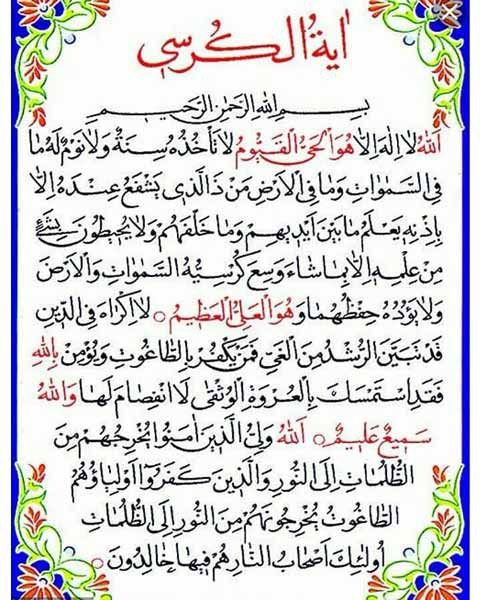 اٰيةُ الكُرسي
بِسْمِ اللهِ الرَّحْمٰنِ الرَّحِيمِ
اَللهُ لَا اِلٰهَ اِلَّا هُوَ الْحَيُّ الْقَيُّومُ لَا تَأْخُذُهُ سِنَةٌ وَلَا نَوْمٌ لَهُ مَا
فِي السَّمٰوَاتِ وَمَا فِي الْاَرْضِ مَنْ ذَا الَّذِي يَشْفَعُ عِنْدَهُ اِلَّا
بِاِذْنِهِ يَعْلَمُ مَا بَيْنَ اَيْدِيهِمْ وَمَا خَلْفَهُمْ وَلَا يُحِيطُونَ بِشَيْءٍ
مِنْ عِلْمِهِ اِلَّا بِمَا شَاءَ وَسِعَ كُرْسِيُّهُ السَّمٰوَاتِ وَالْاَرْضَ
وَلَا يَؤُدُهُ حِفْظُهُمَا وَهُوَ الْعَلِيُّ الْعَظِيمُ ○ لَا اِكْرَاهَ فِي الدِّينِ
قَدْ تَبَيَّنَ الرُّشْدُ مِنَ الْغَيِّ فَمَنْ يَكْفُرْ بِالطَّاغُوتِ وَيُؤْمِنْ بِاللهِ
فَقَدِ اسْتَمْسَكَ بِالْعُرْوَةِ الْوُثْقٰى لَا انْفِصَامَ لَهَا وَاللهُ
سَمِيعٌ عَلِيمٌ ○ اَللهُ وَلِيُّ الَّذِينَ اٰمَنُوا يُخْرِجُهُمْ مِنَ
الظُّلُمَاتِ اِلَى النُّورِ وَالَّذِينَ كَفَرُوا اَوْلِيَاؤُهُمُ
الطَّاغُوتُ يُخْرِجُونَهُمْ مِنَ النُّورِ اِلَى الظُّلُمَاتِ
اُولٰئِكَ اَصْحَابُ النَّارِ هُمْ فِيهَا خَالِدُونَ ○